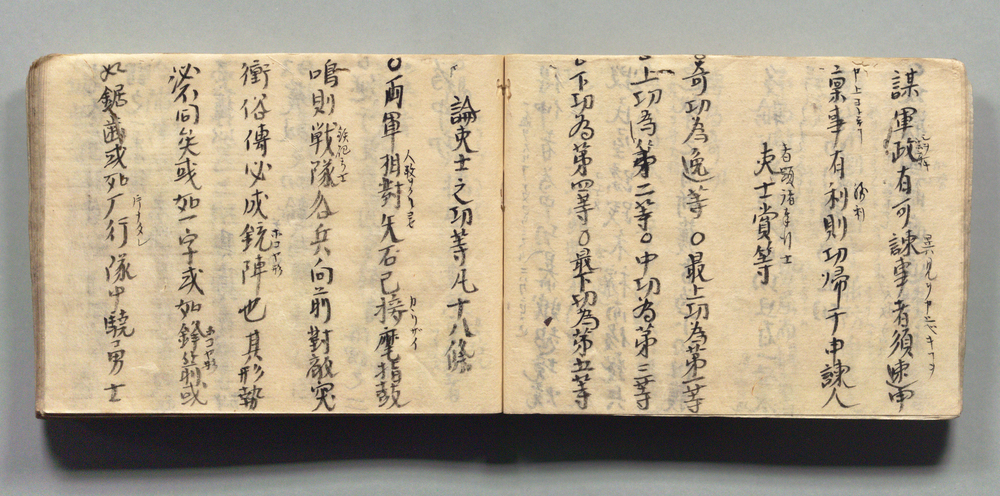 謀軍政有可諫事者須速申
稟事有利則功帰于申諫人
夷士賞等
奇功為逸等〇最上功為第一等
上功為第二等〇中功為第三等
〇下功為第四等〇最下功為第五等
論夷士之功等凡十八條
〇両軍相對矢石已接麾指鼓
鳴則戦隊各兵向前對敵寇
衝俗傳必成鋭陣也其形勢
必不同矣或如一字或如鋒箭或
如鋸歯或如厂行隊中驍勇士